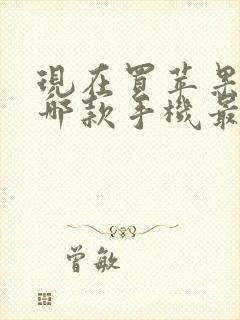 現在買苹果
哪款手機最
曾敏